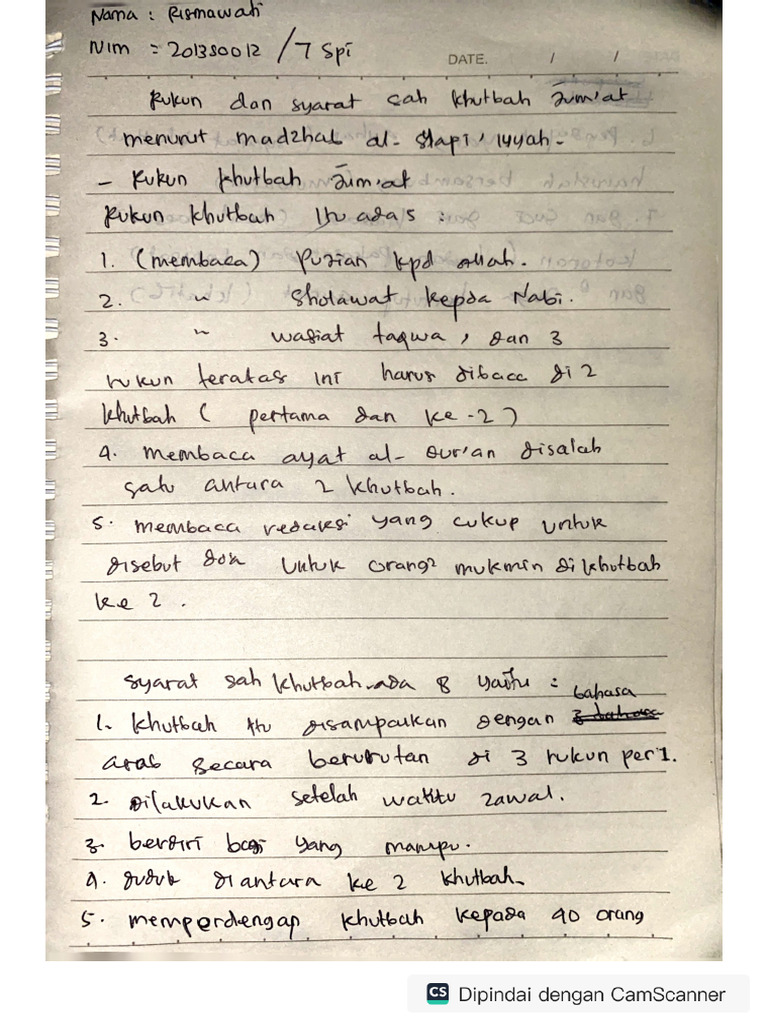 Nama : Rismawati
Nim : 201350012 / 7 Spi
DATE. / /
Rukun dan syarat sah khutbah Jum'at
menurut madzhab al- Syapi'iyyah -
- Rukun khutbah Jum'at
Rukun khutbah Itu ada 5 :
1. (membaca) Pujian kpd Allah.
2. " Sholawat kepda Nabi.
3. " wasiat taqwa, dan 3
rukun teratas ini harus dibaca di 2
khutbah ( pertama dan ke -2 )
4. membaca ayat al- Qur'an disalah
satu antara 2 khutbah.
5. membaca redaksi yang cukup untuk
disebut doa untuk orang2 mukmin di khutbah
ke 2 .
syarat sah khutbah ada 8 yaitu :
1. khutbah itu disampaikan dengan bahasa
arab secara berurutan di 3 rukun per 1.
2. Dilakukan setelah waktu zawal.
3. berdiri bagi yang mampu.
4. duduk diantara ke 2 khutbah.
5. memperdengap khutbah kepada 40 orang
CS Dipindai dengan CamScanner